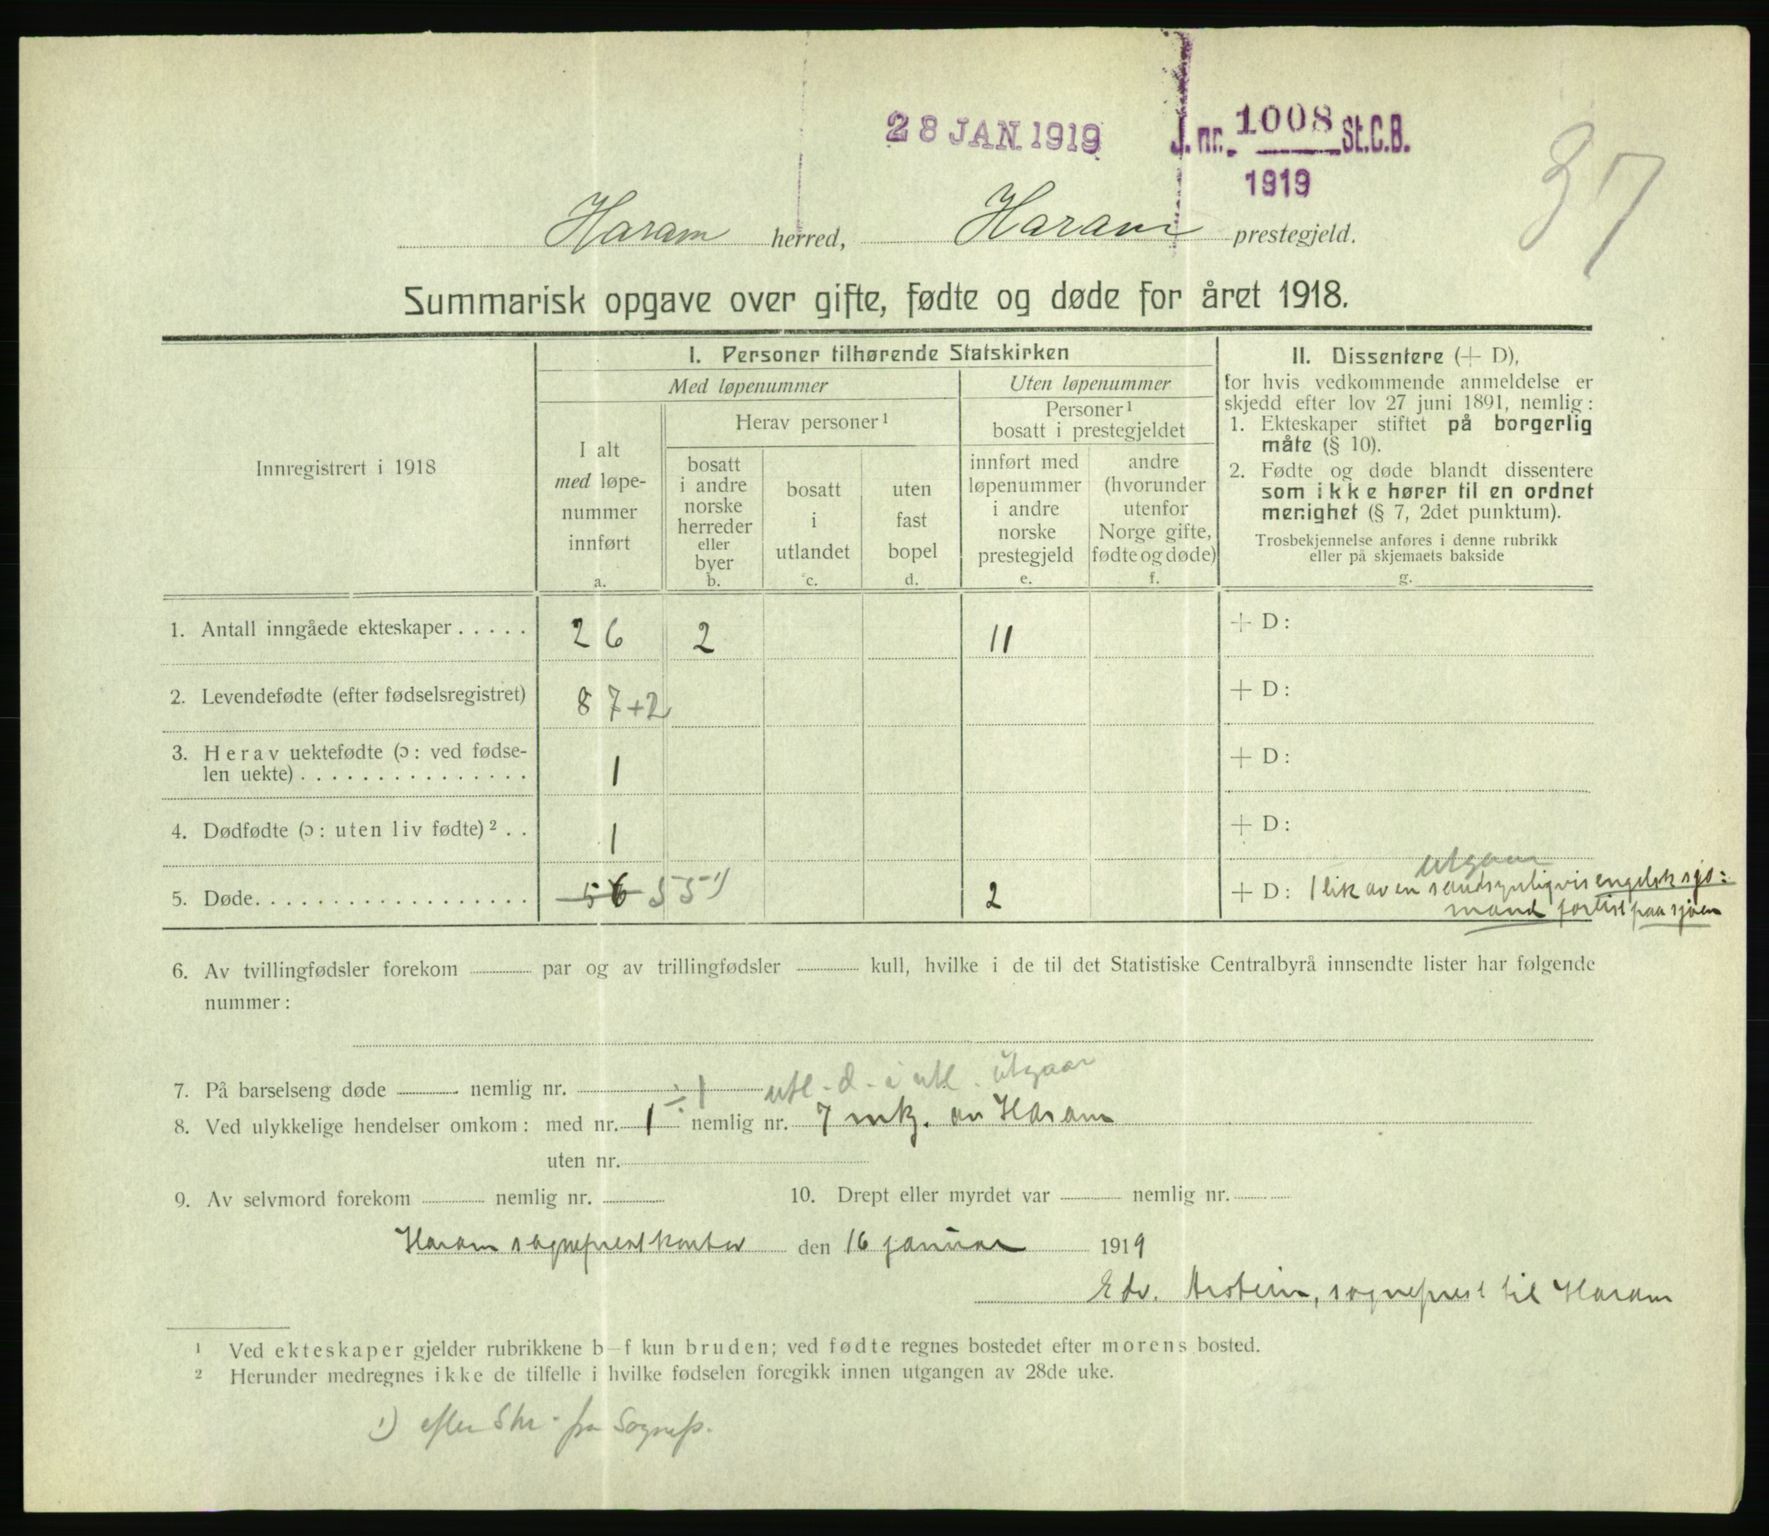 28 JAN 1919
J. nr. 1008 St.C.B.
1919
37
Haram herred, Haram prestegjeld.
Summarisk opgave over gifte, fødte og døde for året 1918.
Innregistrert i 1918
I. Personer tilhørende Statskirken
Med løpenummer
Uten løpenummer
I alt
med løpe-
nummer
innført
a.
Herav personer¹
bosatt
i andre
norske
herreder
eller
byer
b.
bosatt
i
utlandet
c.
uten
fast
bopel
d.
Personer¹
bosatt i prestegjeldet
innført med
løpenummer
i andre
norske
prestegjeld
e.
andre
(hvorunder
utenfor
Norge gifte,
fødte og døde)
f.
II. Dissentere (+ D),
for hvis vedkommende anmeldelse er
skjedd efter lov 27 juni 1891, nemlig:
1. Ekteskaper stiftet på borgerlig
måte (§ 10).
2. Fødte og døde blandt dissentere
som ikke hører til en ordnet
menighet (§ 7, 2det punktum).
Trosbekjennelse anføres i denne rubrikk
eller på skjemaets bakside
g.
1. Antall inngåede ekteskaper . . . . . 26 2 11 + D:
2. Levendefødte (efter fødselsregistret) 87+2 + D:
3. Herav uektefødte (ɔ: ved fødse-
len uekte) . . . . . . . . . . . . . . . 1 + D:
4. Dødfødte (ɔ: uten liv fødte)² . . 1 + D:
utgaar
5. Døde. . . . . . . . . . . . . . . . . . 56 55¹) 2 + D: 1 lik av en sandsynligvis engelsk sjø=
mand fortist paa sjøen
6. Av tvillingfødsler forekom par og av trillingfødsler kull, hvilke i de til det Statistiske Centralbyrå innsendte lister har følgende
nummer:
7. På barselseng døde nemlig nr. ÷ 1 utl. d. i utl. utgaar
8. Ved ulykkelige hendelser omkom: med nr. 1 nemlig nr. 7 mk. av Haram
uten nr.
9. Av selvmord forekom nemlig nr. 10. Drept eller myrdet var nemlig nr.
Haram sogneprestkontor den 16 januar 1919
Edv. sogneprest til Haram
¹ Ved ekteskaper gjelder rubrikkene b–f kun bruden; ved fødte regnes bostedet efter morens bosted.
² Herunder medregnes ikke de tilfelle i hvilke fødselen foregikk innen utgangen av 28de uke.
¹) efter Skr. fra Sognep.